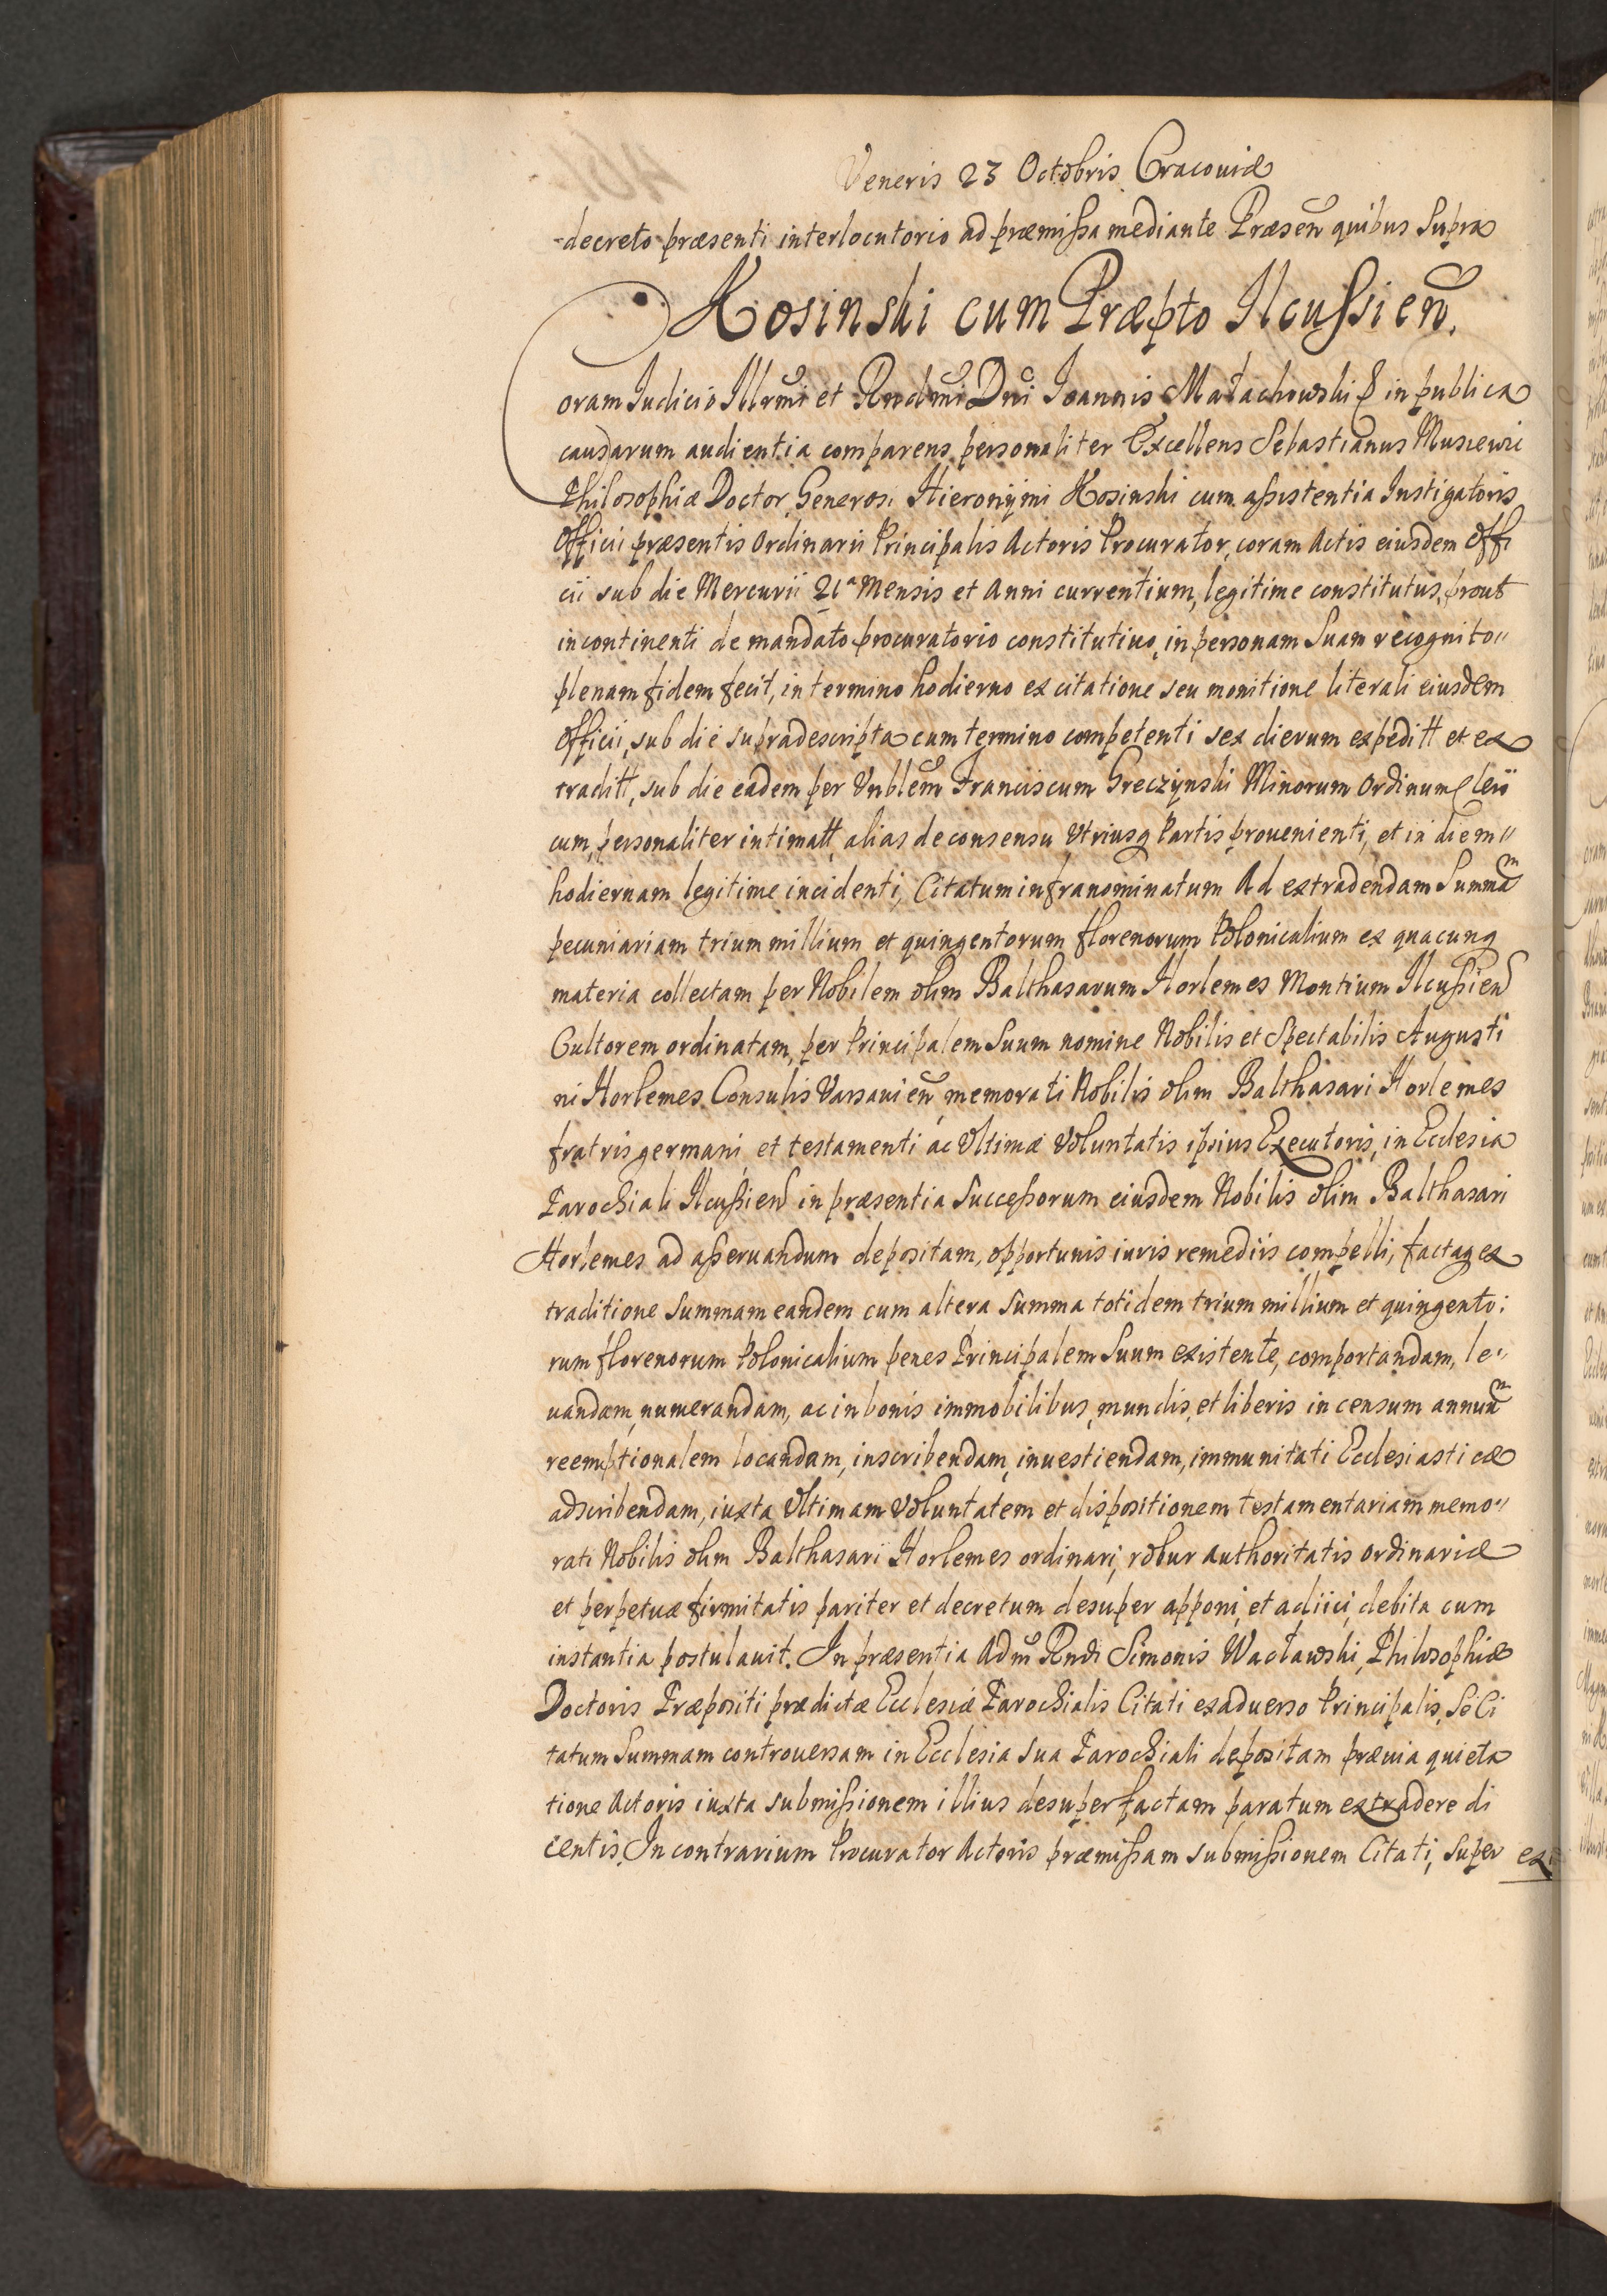 Veneris 23 Octobris Cracouiæ
decreto præsenti interlocutorio ad præmissa mediante Præsen quibus Supra
Kosinski cum Præpto Ilcussien.
Coram Iudicio Illrmi et Rndmi Dni Ioannis Małachowski in publica
causarum audientia comparens personaliter Excellens Sebastianus
Philosophiæ Doctor, Generosi Hieronÿmi Kosinski cum assistentia Instigatoris
Officii præsentis Ordinarii Principalis Actoris Procurator, coram Actis eiusdem Offi
cii sub die Mercurii 21a Mensis et Anni currentium, legitime constitutus, prout
incontinenti de mandato procuratorio constitutiuo, in personam Suam recognito„
plenam fidem fecit, in termino hodierno ex citatione seu monitione literali eiusdem
Officii, sub die supradescripta cum termino competenti sex dierum expeditt et ex
traditt, sub die eadem per Vnblem Franciscum Greczÿnski Minorum Ordinum Cleri
cum, personaliter intimatt, alias de consensu Vtriusq Partis prouenienti, et in diem„
hodiernam legitime incidenti, Citatum infranominatum Ad extradendam Summam
pecuniariam trium millium et quingentorum florenorum Polonicalium ex quacunq
materia collectam per Nobilem olim Balthasarum Horlemes Montium Ilcussien
Cultorem ordinatam, per Principalem Suum nomine Nobilis et Spectabilis Augusti
ni Horlemes Consulis Varsauien, memorati Nobilis olim Balthasari Horlemes
fratris germani, et testamenti ac Vltimæ Voluntatis ipsius Executoris, in Ecclesia
Parochiali Ilcussien in præsentia Successorum eiusdem Nobilis olim Balthasari
Horlemes ad asseruandum depositam, opportunis iuris remediis compelli, factaq ex
traditione Summam eandem cum altera Summa totidem trium millium et quingento:
rum florenorum Polonicalium penes Principalem Suum existente, comportandam, le„
uandam, numerandam, ac in bonis immobilibus, mundis, et liberis in censum annuum
reemptionalem locandam, inscribendam, inuestiendam, immunitati Ecclesiasticæ
adscribendam, iuxta Vltimam Voluntatem et dispositionem testamentariam memo„
rati Nobilis olim Balthasari Horlemes ordinari, robur authoritatis ordinariæ
et perpetuæ firmitatis pariter et decretum desuper apponi, et adiici, debita cum
instantia postulauit. In præsentia Adm Rndi Simonis Wacławski, Philosophiæ
Doctoris Præpositi prædictæ Ecclesiæ Parochialis Citati exaduerso Principalis, Se Ci
tatum Summam controuersam in Ecclesia sua Parochiali depositam præuia quieta
tione Actoris iuxta submissionem illius desuper factam paratum extradere di
centis. In contrarium Procurator Actoris præmissam submissionem Citati, super ex